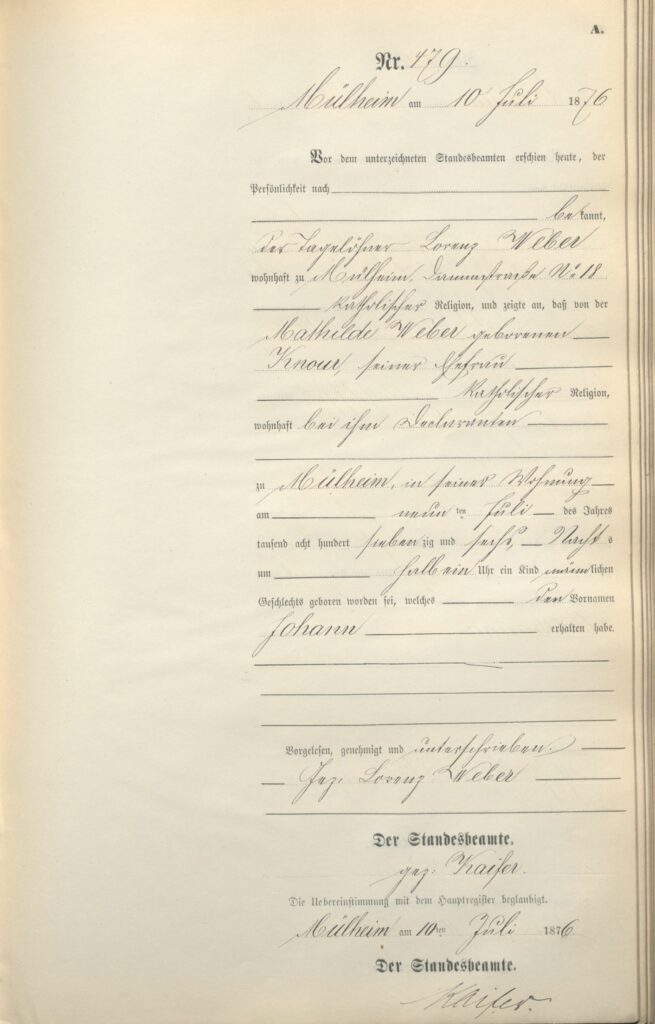 A.
Nr. 479.
Mülheim am 10 Juli 1876
Vor dem unterzeichneten Standesbeamten erschien heute, der
Persönlichkeit nach
bekannt,
der Tagelöhner Lorenz Weber
wohnhaft zu Mülheim, Dammstraße No 18
katholischer Religion, und zeigte an, daß von der
Mathilde Weber geborenen
Knour, seiner Ehefrau
katholischer Religion,
wohnhaft bei ihm Declaranten
zu Mülheim, in seiner Wohnung
am neun ten Juli des Jahres
tausend acht hundert siebenzig und sechs, Nachts
um halb ein Uhr ein Kind männlichen
Geschlechts geboren worden sei, welches den Vornamen
Johann erhalten habe.
Vorgelesen, genehmigt und unterschrieben.
Gez: Lorenz Weber
Der Standesbeamte.
gez: Kaifer.
Die Uebereinstimmung mit dem Hauptregister beglaubigt.
Mülheim am 10ten Juli 1876
Der Standesbeamte.
Kaifer.